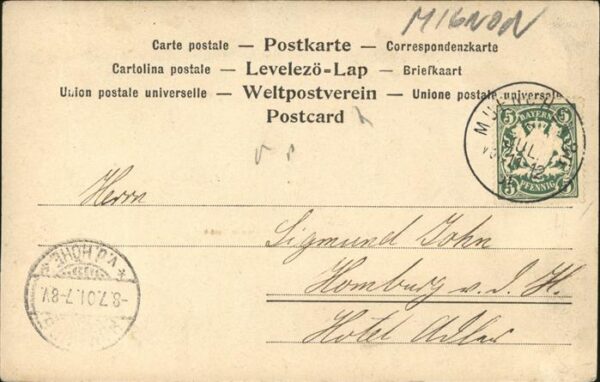 MIGNON
Carte postale — Postkarte — Correspondenzkarte
Cartolina postale — Levelező-Lap — Briefkaart
Union postale universelle — Weltpostverein — Unione postale universale
Postcard
MUENCHEN
JUL.
12
5 BAYERN 5
5 PFENNIG 5
Herrn
Sigmund John
Homburg v. d. H.
Hotel Adler
V.D.HÖHE
-8.7.01.7-8V.